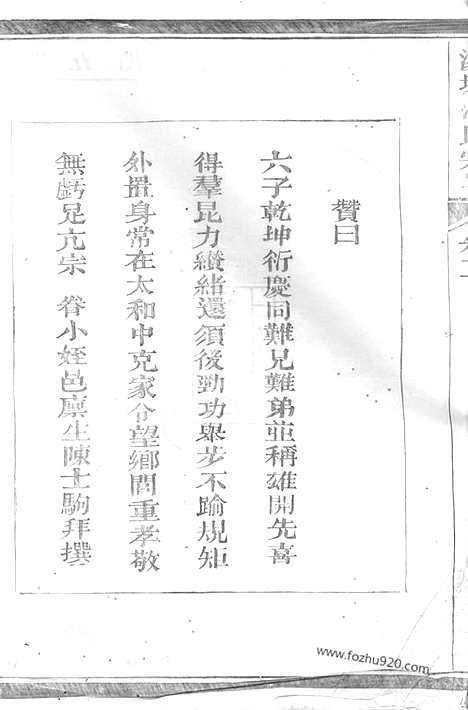 贊曰
六子乾坤衍慶同難兄難弟並稱雄開先喜
得羣昆力纘緒還須後勁功舉步不踰規矩
外置身常在太和中克家令望鄉閭重孝敬
無虧足亢宗 眷小姪邑廩生陳士駒拜撰
www.fozhu920.com